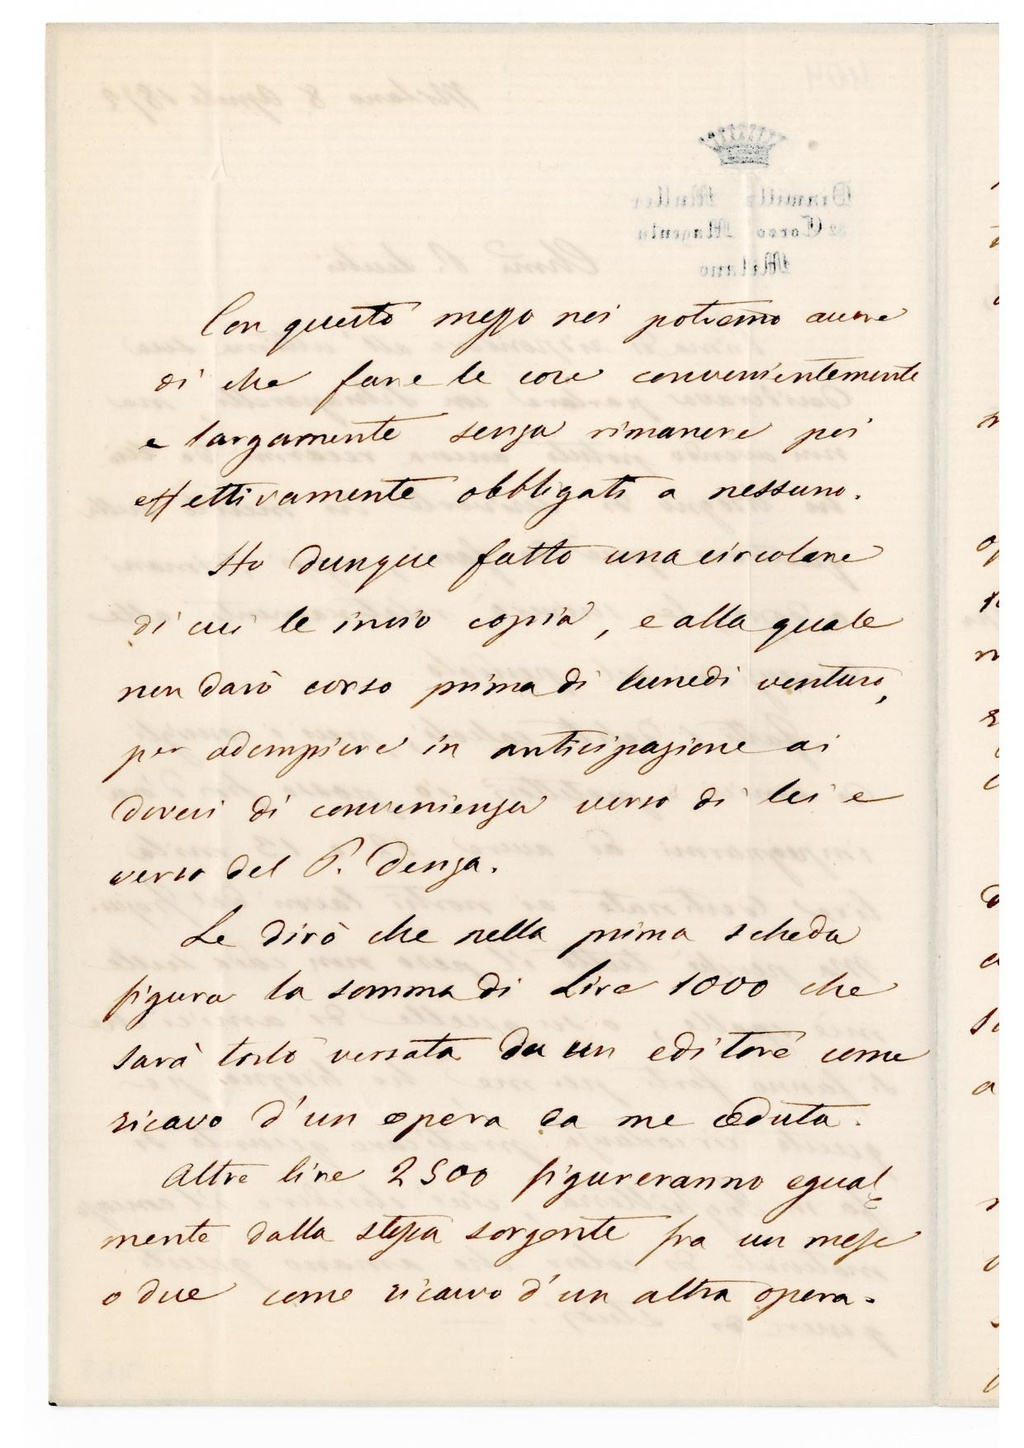 Con questo mezzo noi potremo avere
di che fare le cose convenientemente
e largamente senza rimanere poi
effettivamente obbligati a nessuno.
Ho dunque fatto una circolare
di cui le invio copia, e alla quale
non darò corso prima di lunedì venturo,
per adempiere in anticipazione ai
doveri di convenienza verso di lei e
verso del P. Denza.
Le dirò che nella prima scheda
figura la somma di Lire 1000 che
sarà tosto versata da un editore come
ricavo d'un opera da me ceduta.
Altre lire 2500 figureranno egual=
mente dalla stessa sorgente fra un mese
o due come ricavo d'un altra opera.